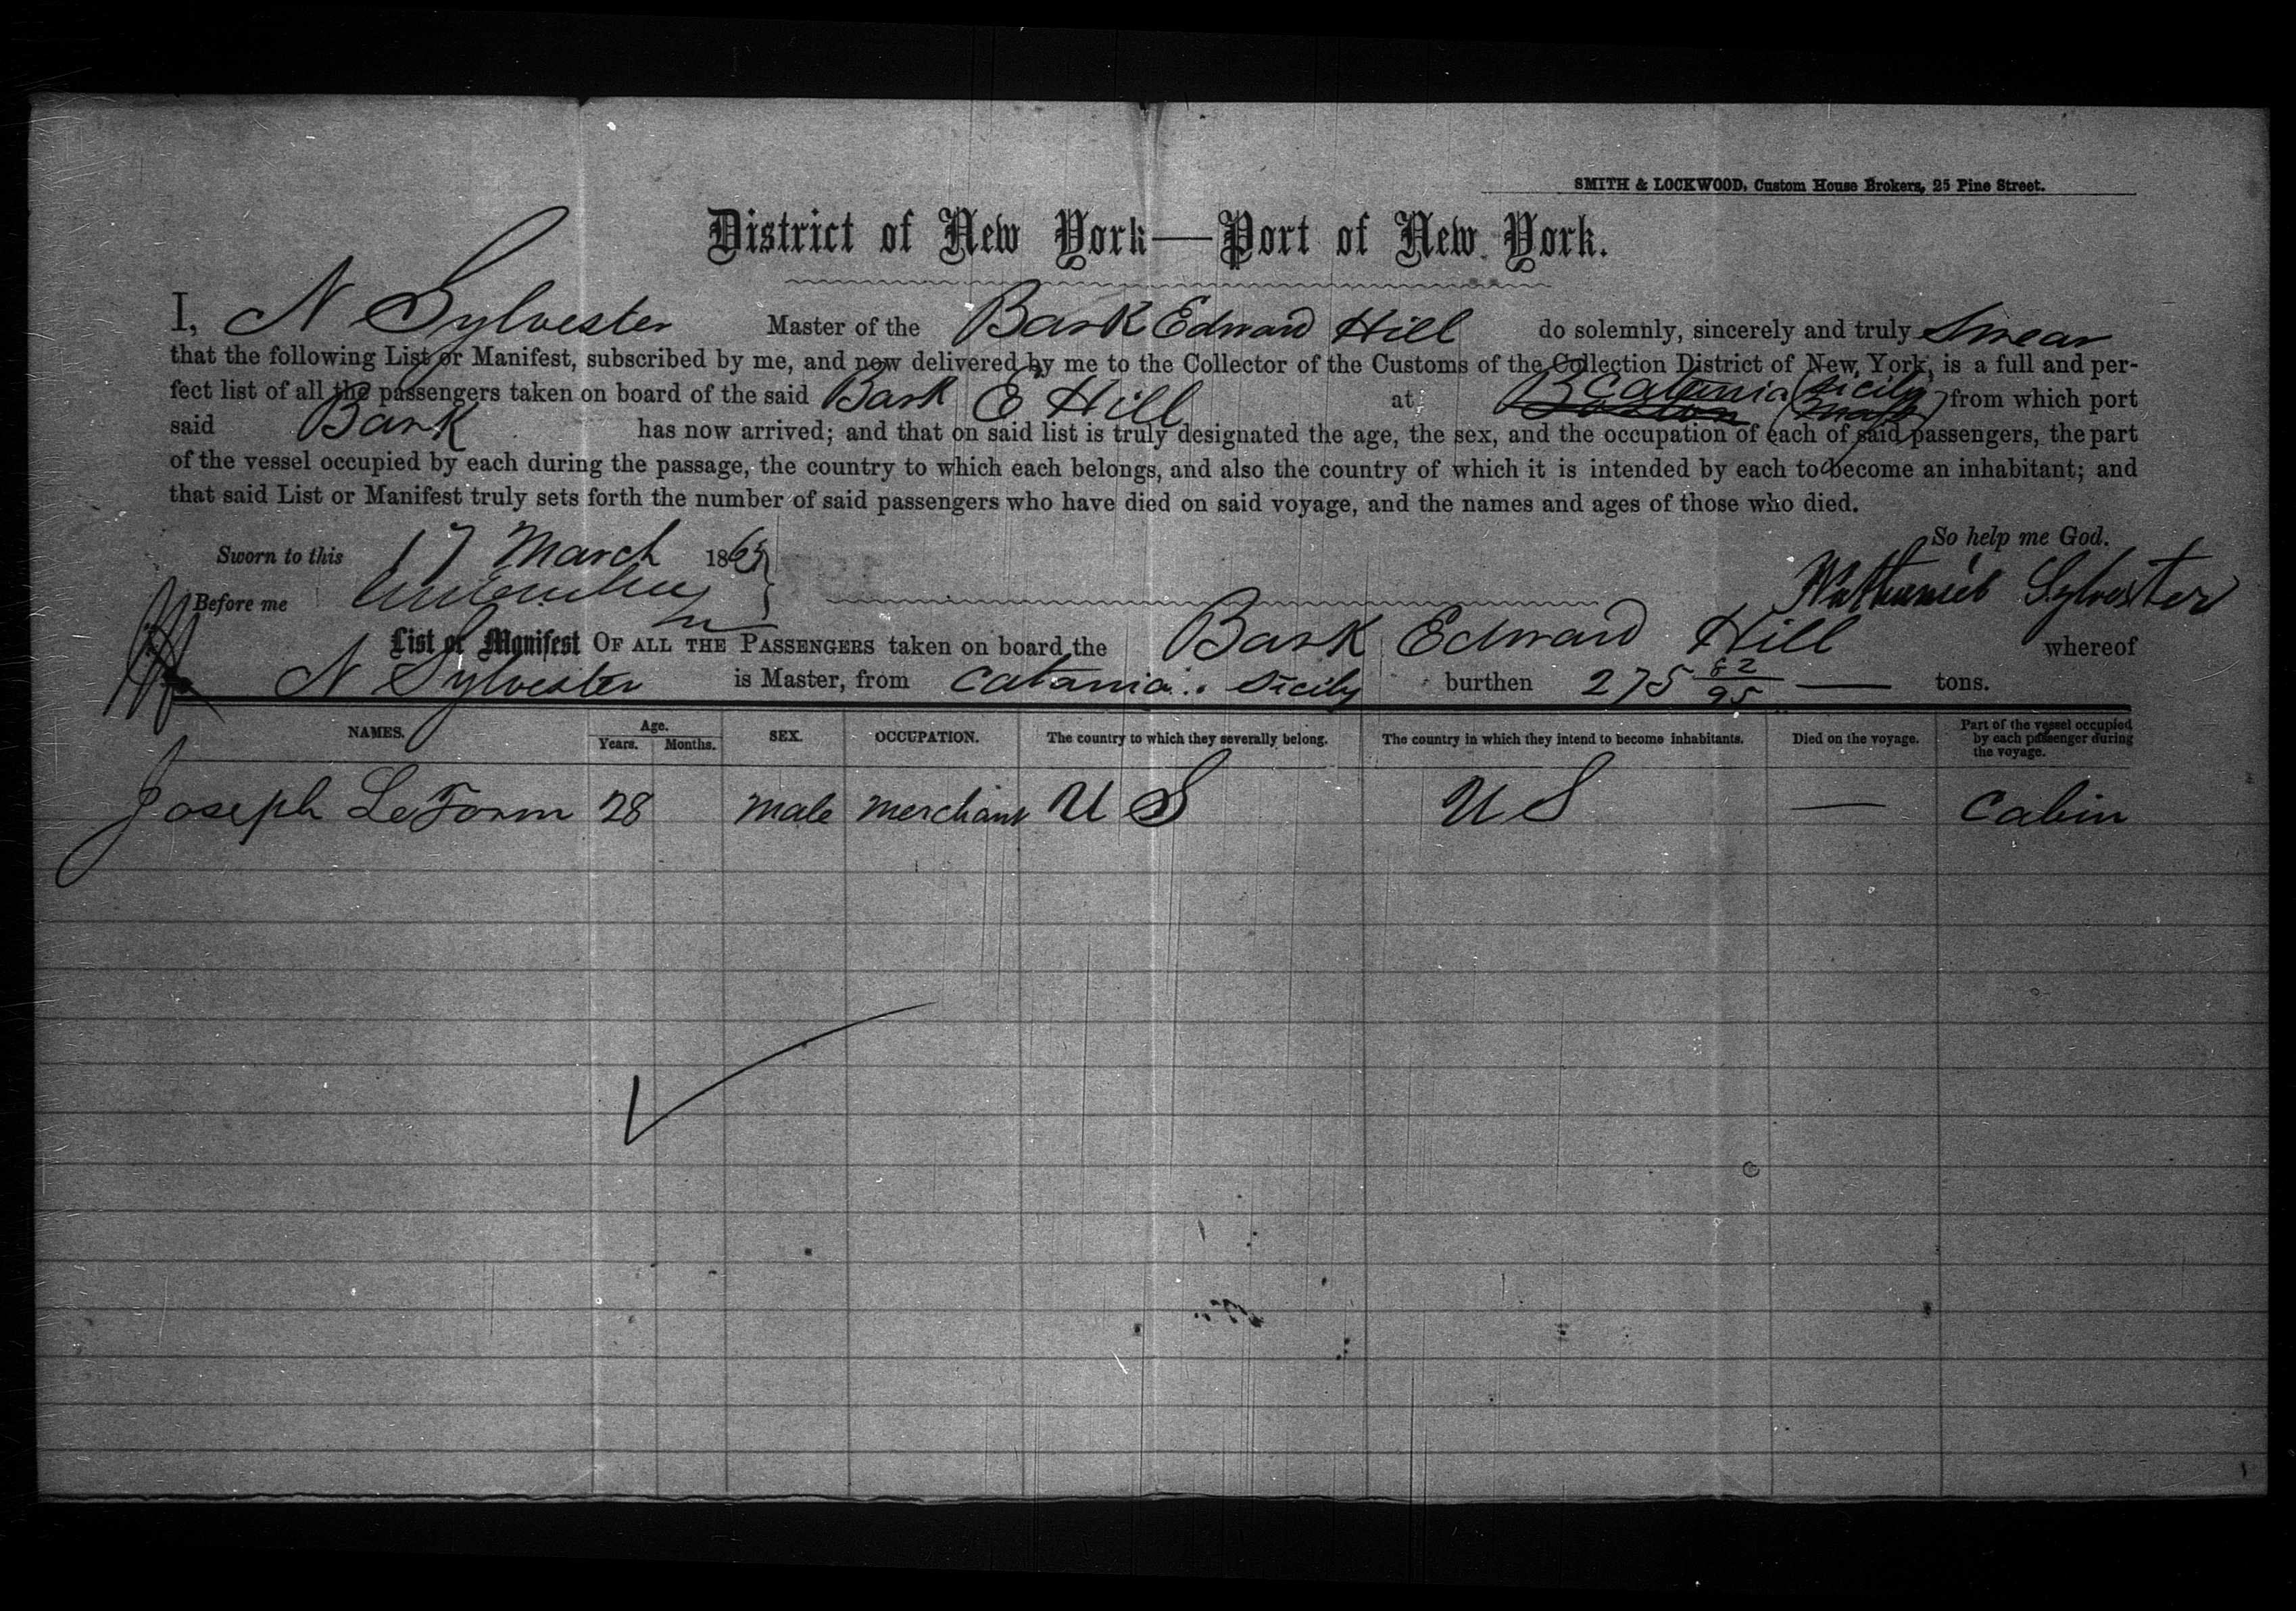 SMITH & LOCKWOOD, Custom House Brokers, 25 Pine Street.
District of New York—Port of New York.
I, N Sylvester Master of the Bark Edward Hill do solemnly, sincerely and truly Swear
that the following List or Manifest, subscribed by me, and now delivered by me to the Collector of the Customs of the Collection District of New York, is a full and per-
fect list of all the passengers taken on board of the said Bark E Hill at Catania (Sicily) from which port
said Bark has now arrived; and that on said list is truly designated the age, the sex, and the occupation of each of said passengers, the part
of the vessel occupied by each during the passage, the country to which each belongs, and also the country of which it is intended by each to become an inhabitant; and
that said List or Manifest truly sets forth the number of said passengers who have died on said voyage, and the names and ages of those who died.
So help me God.
Sworn to this 17 March 1863
Before me
Nathaniel Sylvester
List or Manifest OF ALL THE PASSENGERS taken on board the Bark Edward Hill whereof
N Sylvester is Master, from Catania.. Sicily burthen 275 82/95 — tons.
NAMES. Age. Years. Months. SEX. OCCUPATION. The country to which they severally belong. The country in which they intend to become inhabitants. Died on the voyage. Part of the vessel occupied by each passenger during the voyage.
Joseph LeForm 28 male merchant U S U S — Cabin